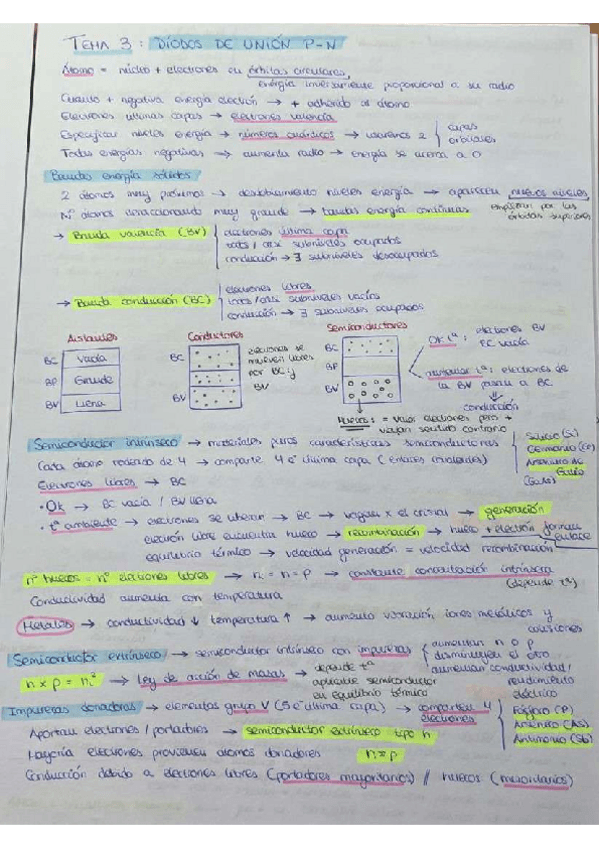 TEMA 3: DIODOS DE UNIÓN P-N
Átomo = núcleo + electrones en órbitas circulares,
energía inversamente proporcional a su radio
Cuanto + negativa energía electrón → + adherido al átomo
Electrones últimas capas → electrones valencia
Especificar niveles energía → números cuánticos → usaremos 2 capas
orbitales
Todas energías negativas → aumenta radio → energía se acerca a 0
Bandas energía sólidos
2 átomos muy próximos → desdoblamiento niveles energía → aparecen nuevos niveles
empiezan por las
órbitas superiores
Nº átomos interaccionando muy grande → bandas energía continuas
→ Banda valencia (BV) electrones última capa
todos / casi subniveles ocupados
conducción → ∃ subniveles desocupados
→ Banda conducción (BC) electrones libres
todos / casi subniveles vacíos
conducción → ∃ subniveles ocupados
Aislantes
BC Vacía
BP Grande
BV Llena
Conductores
BC
BV
electrones se
mueven libres
por BC y
BV
Semiconductores
BC
BP
BV
0K tª: electrones BV
BC vacía
tª: electrones de
la BV pasan a BC
↓
conducción
Huecos: = valor electrones pero +
viajan sentido contrario
Semiconductor intrínseco → materiales puros características semiconductoras
Silicio (Si)
Germanio (Ge)
Arseniuro de
Galio
(GaAs)
Cada átomo rodeado de 4 → comparte 4 e⁻ última capa (enlaces covalentes)
Electrones libres → BC
• 0K → BC vacía / BV llena
• tª ambiente → electrones se liberan → BC → vagan x el cristal → generación
electrón libre encuentra hueco → recombinación → hueco + electrón forman
enlace
equilibrio térmico → velocidad generación = velocidad recombinación
nº huecos = nº electrones libres → nᵢ = n = p → constante concentración intrínseca
(depende tª)
Conductividad aumenta con temperatura
Metales → conductividad ↓ temperatura ↑ → aumento vibración iones metálicos y
colisiones
Semiconductor extrínseco → semiconductor intrínseco con impurezas
aumentan n o p
disminuyen el otro
aumentan conductividad /
rendimiento
eléctrico
n x p = nᵢ² → Ley de acción de masas → depende tª
aplicable semiconductor
en equilibrio térmico
Impurezas donadoras → elementos grupo V (5 e⁻ última capa) → comparten 4
electrones
Fósforo (P)
Arsénico (AS)
Antimonio (Sb)
Aportan electrones / portadores → semiconductor extrínseco tipo n
Mayoría electrones provienen átomos donadores
Conducción debido a electrones libres (portadores mayoritarios) // huecos (minoritarios)